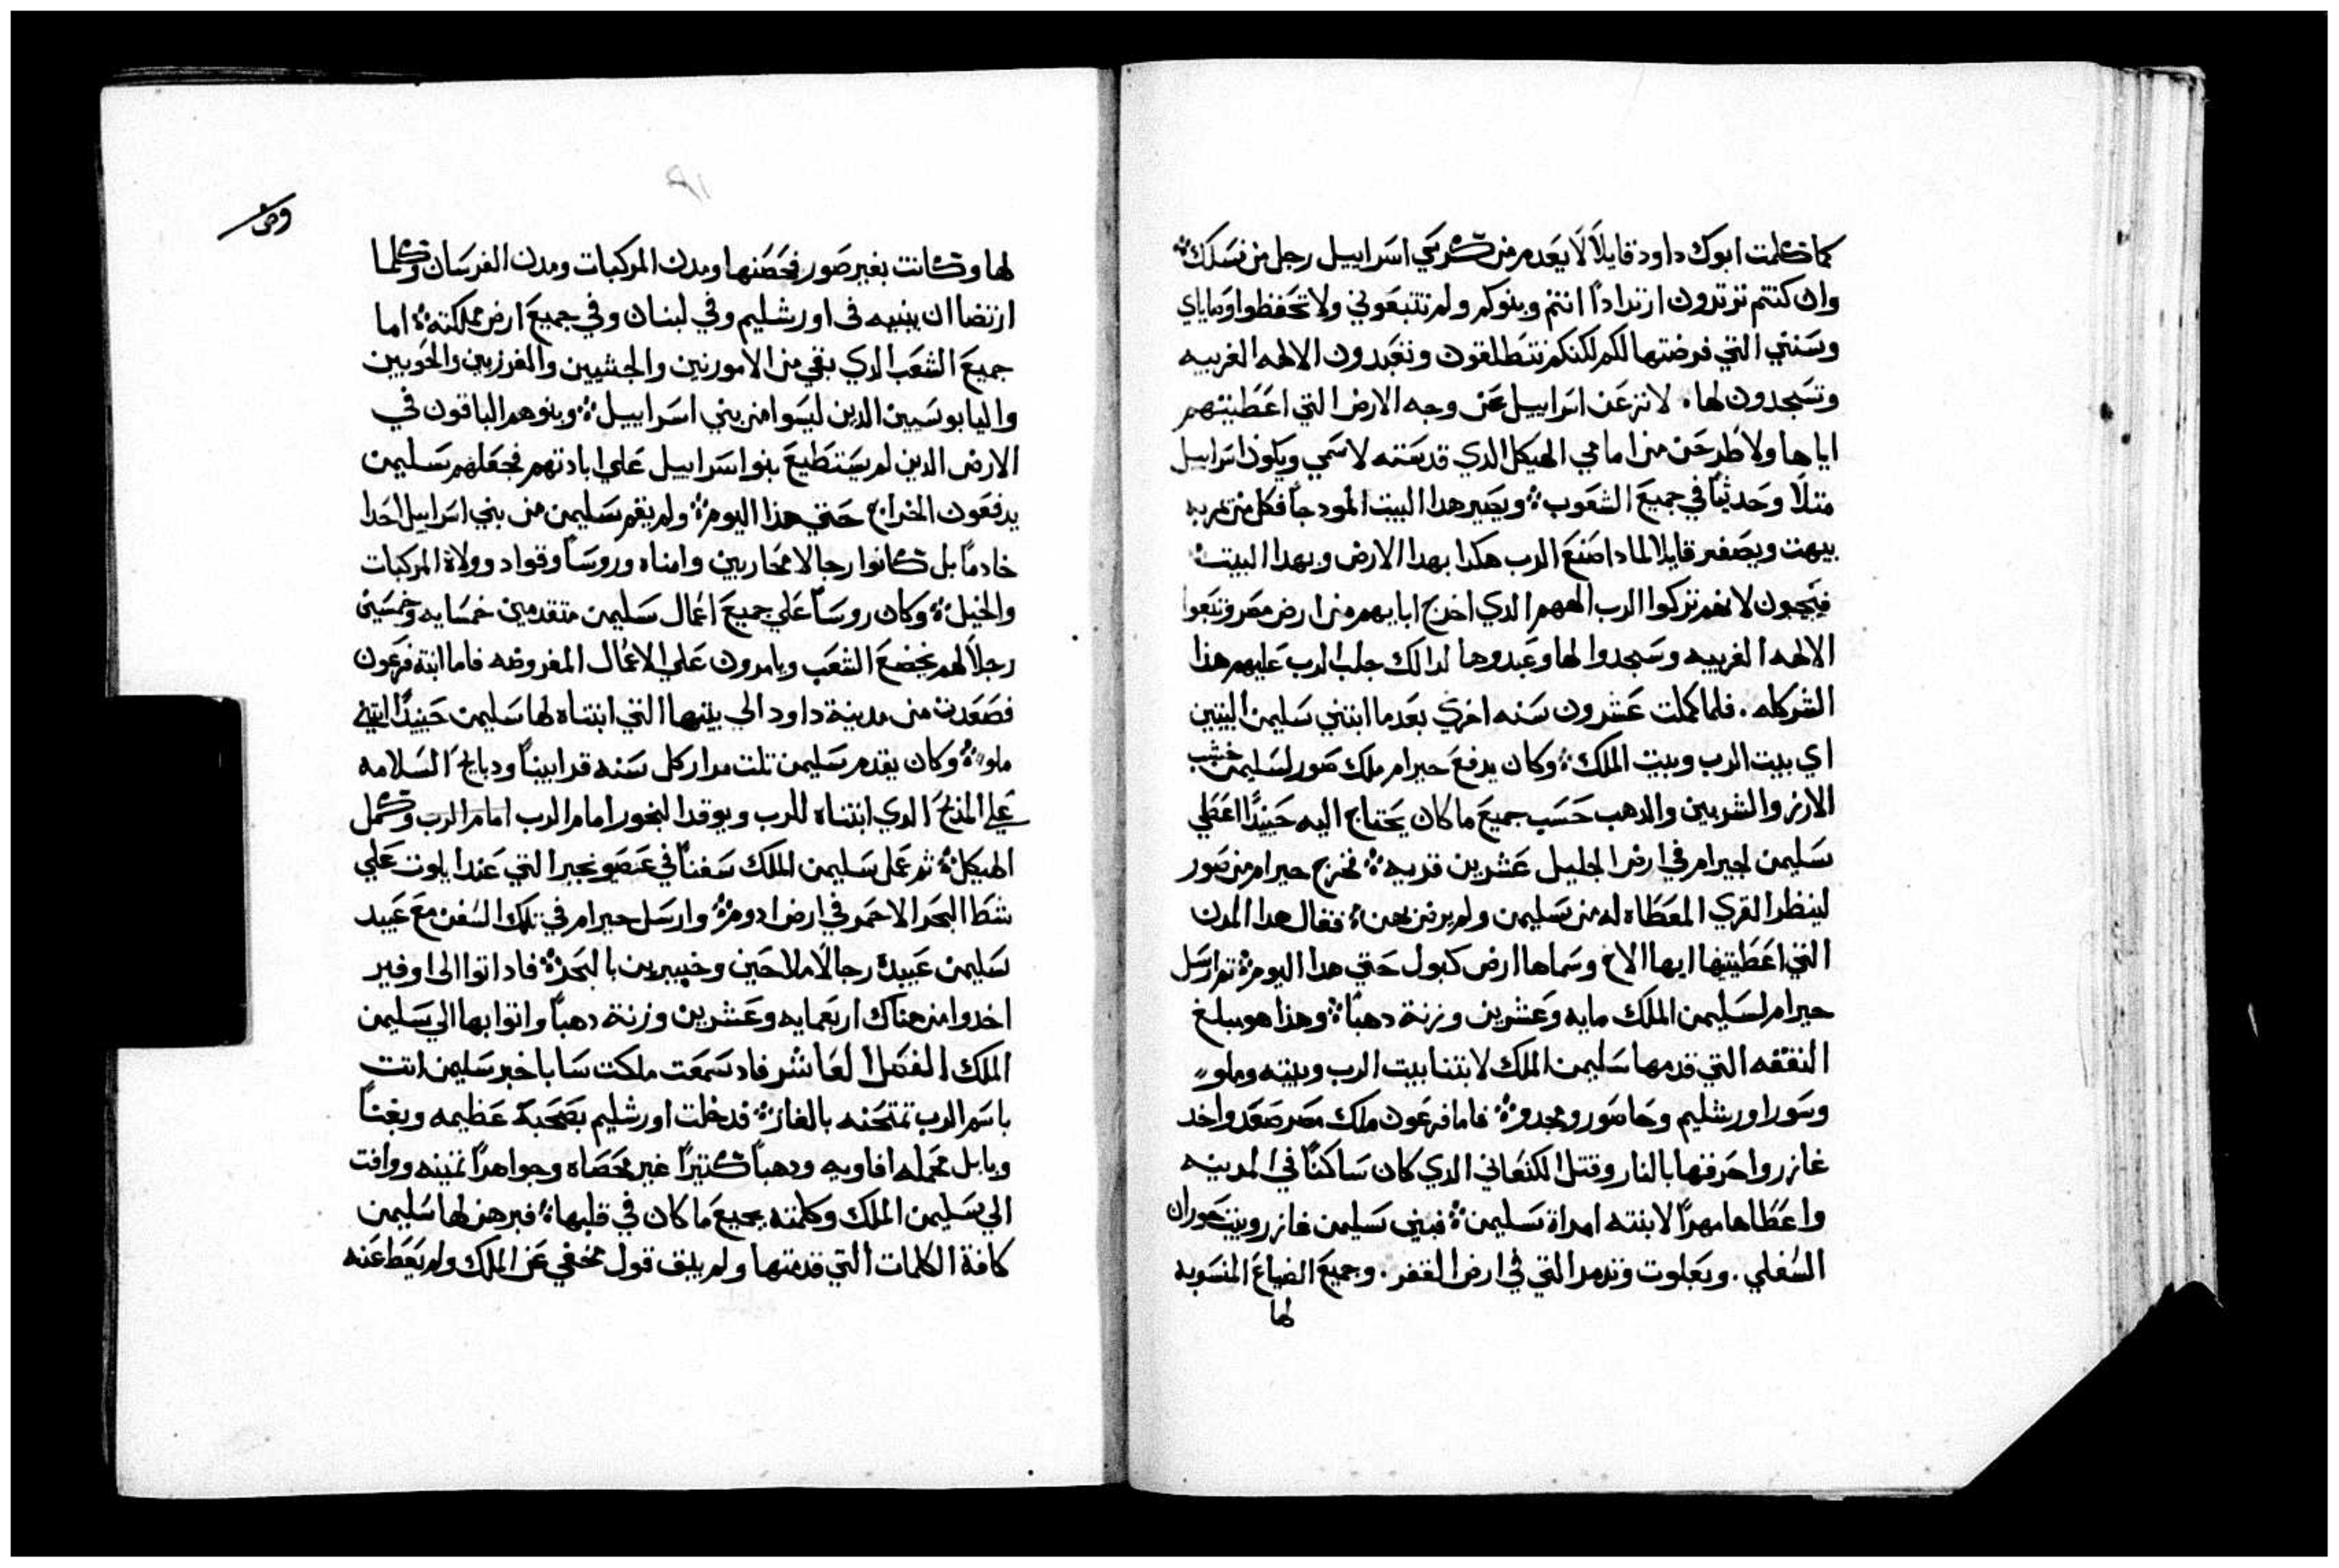 كما كلمت ابوك داود قايلاً لا يعدم من كرسي اسراييل رجل من نسلك
وان كنتم ترتدون ارتداداً انتم وبنوكم ولم تتبعوني ولا تحفظوا وصاياي
وسنني التي فرضتها لكم لكنكم تنطلقون وتعبدون الالهه الغريبه
وتسجدون لها لانزعن اسراييل عن وجه الارض التي اعطيتهم
اياها ولاطرحن من امامي الهيكل الدي قدسته لاسمي ويكون اسراييل
مثلاً وحديثاً في جميع الشعوب ويصير هدا البيت نمودجاً فكل من يمر به
يبهت ويصفر قايلا لمادا صنع الرب هكدا بهدا الارض وبهدا البيت
فيجيبون لانهم تركوا الرب الههم الدي اخرج ابايهم من ارض مصر وتبعوا
الالهه الغريبه وسجدوا لها وعبدوها لدالك جلب الرب عليهم هذا
الشر كله . فلما كملت عشرون سنه اخري بعدما ابتني سليمن البيتين
اي بيت الرب وبيت الملك وكان يدفع حيرام ملك صور لسليمن خشب
الارز والشربين والدهب حسب جميع ما كان يحتاج اليه حينيدٍ اعطي
سليمن لحيرام في ارض الجليل عشرين قريه فخرج حيرام من صور
لينظر القري المعطاه له من سليمن ولم يرض بهن فقال هدا المدن
التي اعطيتنيها ايها الاخ وسماها ارض كبول حتي هدا اليوم ثم ارسل
حيرام لسليمن الملك مايه وعشرين وزنة دهباً وهذا هو مبلغ
النفقه التي قدمها سليمن الملك لابتنا بيت الرب وبيته وملو
وسور اورشليم وحاصور ومجدو فاما فرعون ملك مصر صعد واخد
غازر واحرقها بالنار وقتل الكنعاني الدي كان ساكناً في المدينه
واعطاها مهراً لابنته امراة سليمن فبني سليمن غازر وبيت حوران
السفلي . وبعلوت وتدمر التي في ارض القفر . وجميع الضياع المنسوبه
لها
وص
لها وكانت بغير صور فحصنها ومدن المركبات ومدن الفرسان وكلما
ارتضا ان يبنيه في اورشليم وفي لبنان وفي جميع ارض مملكته اما
جميع الشعب الدي بقي من الامورنين والجشيين والفرزيين والحويين
واليابوسيين الدين ليسوا من بني اسراييل وبنوهم الباقون في
الارض الدين لم يستطيع بنو اسراييل علي ابادتهم فجعلهم سليمن
يدفعون الخراج حتي هذا اليوم ولم يقم سليمن من بني اسراييل احدا
خادماً بل كانوا رجالا محاربين وامناه وروسآ وقواد وولاة المركبات
والخيل وكان روسآ علي جميع اعمال سليمن متقدمين خمسمايه وخمسين
رجلاً لهم يخضع الشعب ويامرون علي الاعمال المفروضه فاما ابنة فرعون
فصعدت من مدينة داود الي بيتها التي ابتناه لها سليمن حينيدٍ ابتني
ملو وكان يقدم سليمن تلت مرار كل سنه قرابيناً ودبايح السلامه
علي المذبح الدي ابتناه للرب ويوقد البخور امام الرب امام الرب وكمل
الهيكل ثم عمل سليمن الملك سفناً في عصيونجبر التي عند ايلوت علي
شط البحر الاحمر في ارض ادوم وارسل حيرام في تلك السفن مع عبيد
سليمن عبيده رجالاً ملاحين وخبيرين بالبحر فاد اتوا الي اوفير
اخدوا من هناك اربعمايه وعشرين وزنة دهباً واتوا بها الي سليمن
الملك الفصل العاشر فاد سمعت ملكت سابا خبر سليمن اتت
باسم الرب تمتحنه بالغاز فدخلت اورشليم بصحبة عظيمه وبغناً
وبابل محمله افاويه ودهباً كتيراً غير محصاه وجواهراً تمينه ووافت
الي سليمن الملك وكلمته بجميع ما كان في قلبها فبرهن لها سليمن
كافة الكلمات التي قدمتها ولم يبق قول مخفي عن الملك ولم يعط عنه